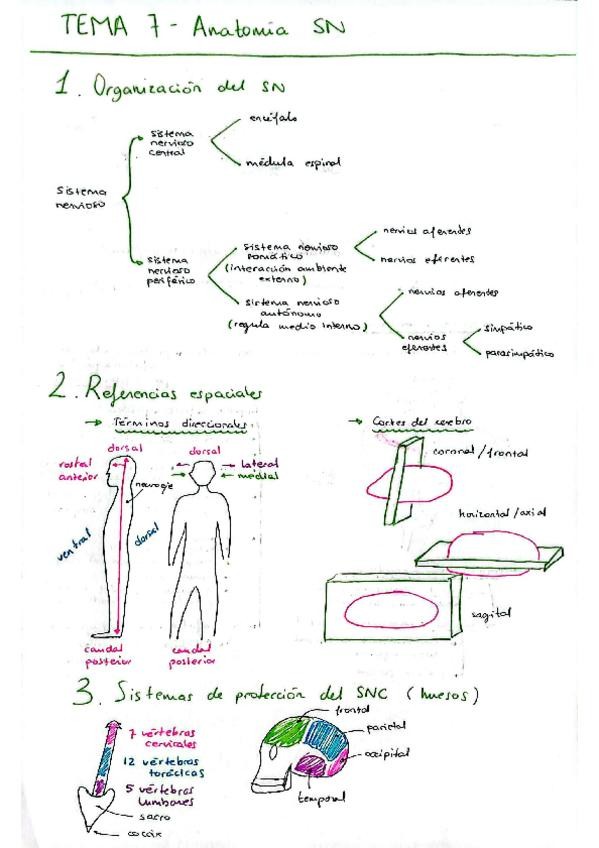 TEMA 7 - Anatomía SN
1. Organización del SN
sistema
nervioso
sistema
nervioso
central
encéfalo
médula espinal
sistema
nervioso
periférico
sistema nervioso
somático
(interacción ambiente
externo)
nervios aferentes
nervios eferentes
sistema nervioso
autónomo
(regula medio interno)
nervios aferentes
nervios
eferentes
simpático
parasimpático
2. Referencias espaciales
→ Términos direccionales
dorsal
rostral
anterior
neuroeje
ventral
dorsal
caudal
posterior
dorsal
lateral
medial
caudal
posterior
→ Cortes del cerebro
coronal/frontal
horizontal/axial
sagital
3. Sistemas de protección del SNC (huesos)
7 vértebras
cervicales
12 vértebras
torácicas
5 vértebras
lumbares
sacro
coccix
frontal
parietal
occipital
temporal